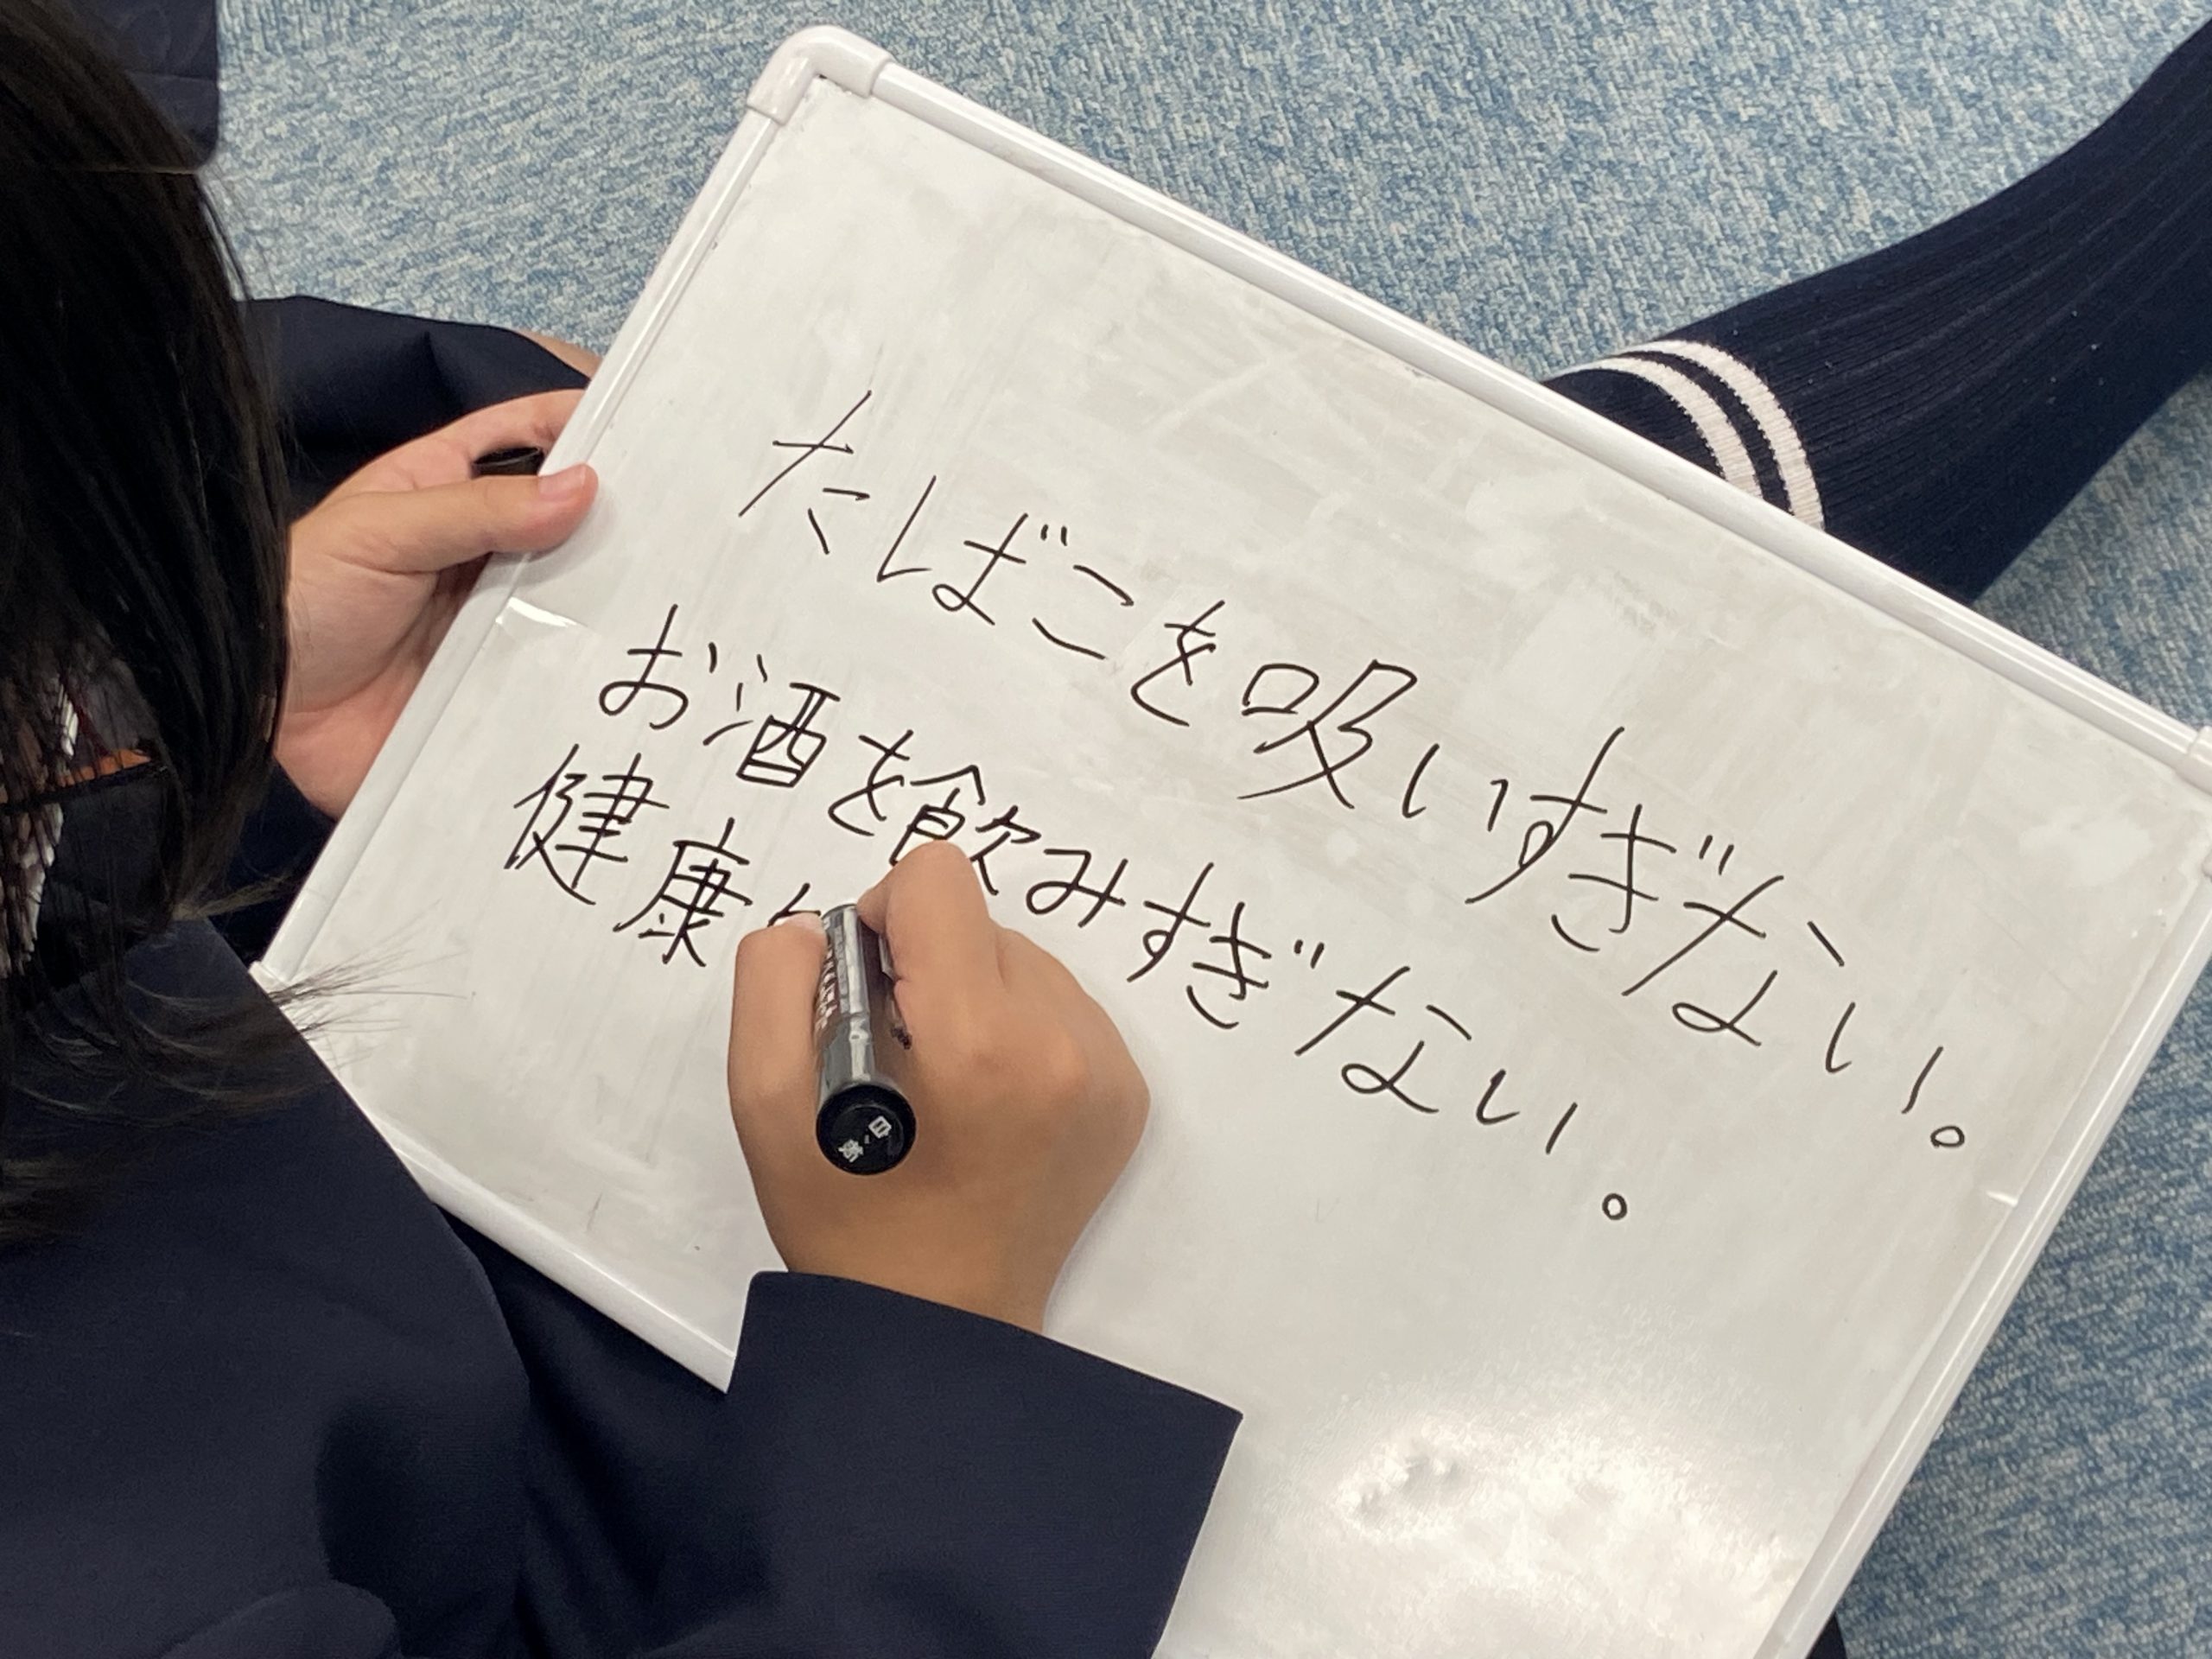 たしばこを吸いすぎない。
お酒を飲みすぎない。
健康